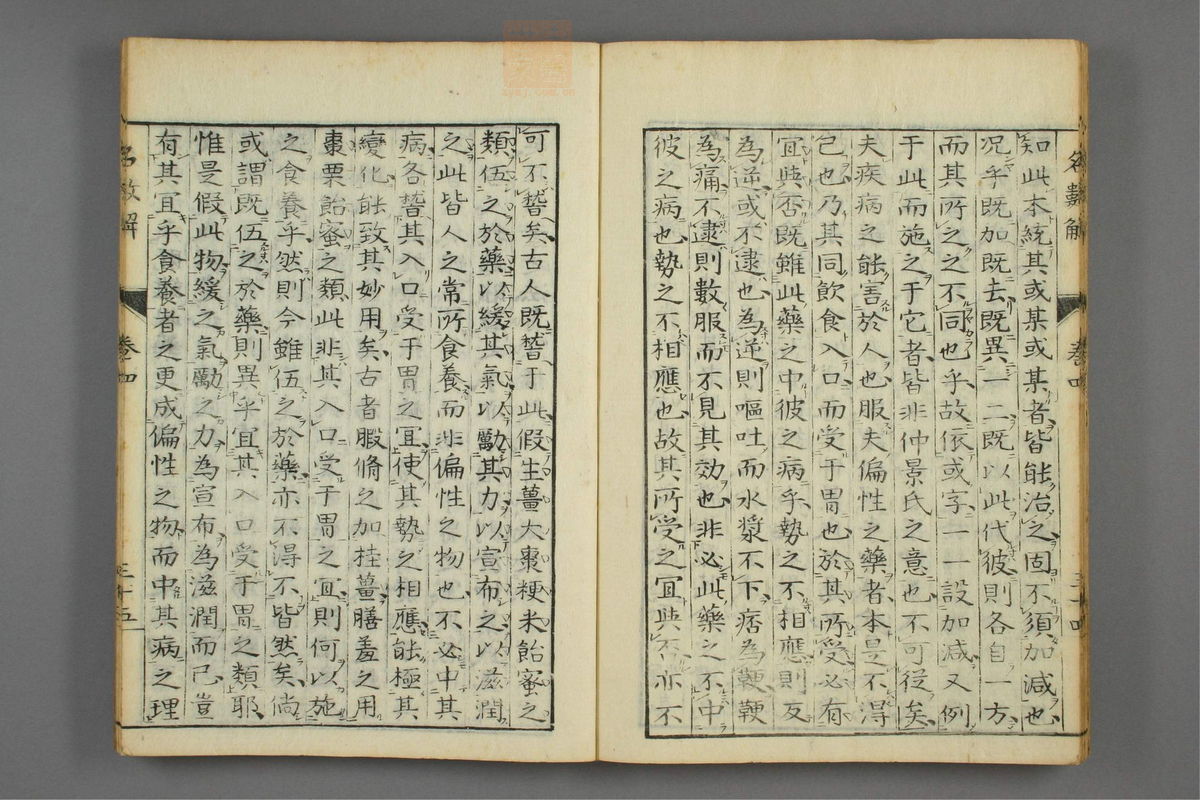 知此本統其或某或某者皆能治之固不須加減也
况乎既加既去既異一二既以此代彼則各自一方
而其所之之不同也乎故依或字一一設加減又例
于此而施之于它者皆非仲景氏之意也不可從矣
夫疾病之能害於人也服夫偏性之藥者本是不得
已也乃其同飲食入口而受于胃也於其所受必有
宜與否既雖此藥之中彼之病乎勢之不相應則反
為逆或不逮也為逆則嘔吐而水漿不下痞為鞕鞕
為痛不逮則數服而不見其効也非必此藥之不中
彼之病也勢之不相應也故其所受之宜與否亦不
可不誓矣古人既誓于此假生薑大棗粳米飴蜜之
類伍之於藥以緩其氣以勵其力以宣布之以滋潤
之此皆人之常所食養而非偏性之物也不必中其
病各誓其入口受于胃之宜使其勢之相應能極其
變化能致其妙用矣古者腶脩之加桂薑膳羞之用
棗栗飴蜜之類此非其入口受于胃之宜則何以施
之食養乎然則今雖伍之於藥亦不得不皆然矣倘
或謂既伍之於藥則異乎宜其入口受于胃之類耶
惟是假此物緩之氣勵之力為宣布為滋潤而已豈
有其宜乎食養者之更成偏性之物而中其病之理
名數解
卷四
三十五